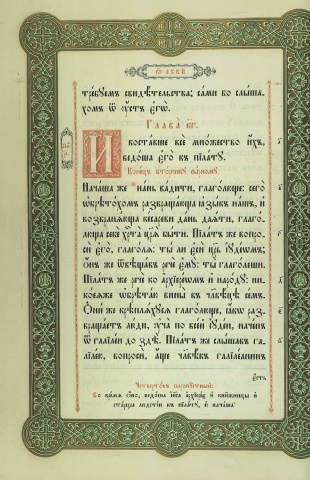 Ѿ лꙋкѝ
требꙋемъ свидѣтельства; сами бо слыша-
хомъ ѿ оустъ єгѡ̀.
Глава̀ к҃г.
И воставше всѐ мно́жество и҆́хъ,
ведоша є҆го̀ къ пїлатꙋ.
Коне́цъ вторникꙋ сы́рномꙋ.
Нача́ша же на́нь ва́дити, глаго́люще: сего̀
ѡ҆брѣто́хомъ развраща́юща ꙗ҆зы́къ на́шъ, и҆
возбранѧ́юща ке́сареви да́нь даѧ́ти, глаго́-
люща себѐ хрⷭ҇та̀ цр҃ѧ̀ бы́ти. Пїла́тъ же вопро-
сѝ є҆го̀, глаго́лѧ: ты́ ли є҆сѝ цр҃ь і҆ꙋде́ѡмъ;
Ѻ҆́нъ же ѿвѣща́въ речѐ є҆мꙋ̀: ты̀ глаго́леши.
Пїла́тъ же речѐ ко а҆рхїере́ѡмъ и҆ наро́дꙋ: ни-
ко́еѧже ѡ҆брѣта́ю вины̀ въ чл҃вѣ́цѣ се́мъ.
Ѻ҆ни́ же крѣплѧ́хꙋсѧ глаго́люще, ꙗ҆́кѡ раз-
враща́етъ лю́ди, ᲂу҆чѧ̀ по все́й і҆ꙋде́и, наче́нъ
ѿ галїле́и до здѣ̀. Пїла́тъ же слы́шавъ га-
лїле́ю, вопросѝ, а҆́ще чл҃вѣ́къ галїле́анинъ
є҆́сть
Четверто́къ мѧсопꙋ́стный:
Во вре́мѧ ѻ҆́но, ведо́ша і҆и҃са а҆рхїере́є и҆ кни́жницы и҆
ста́рцы людсті́и къ пїла́тꙋ, и҆ нача́ша